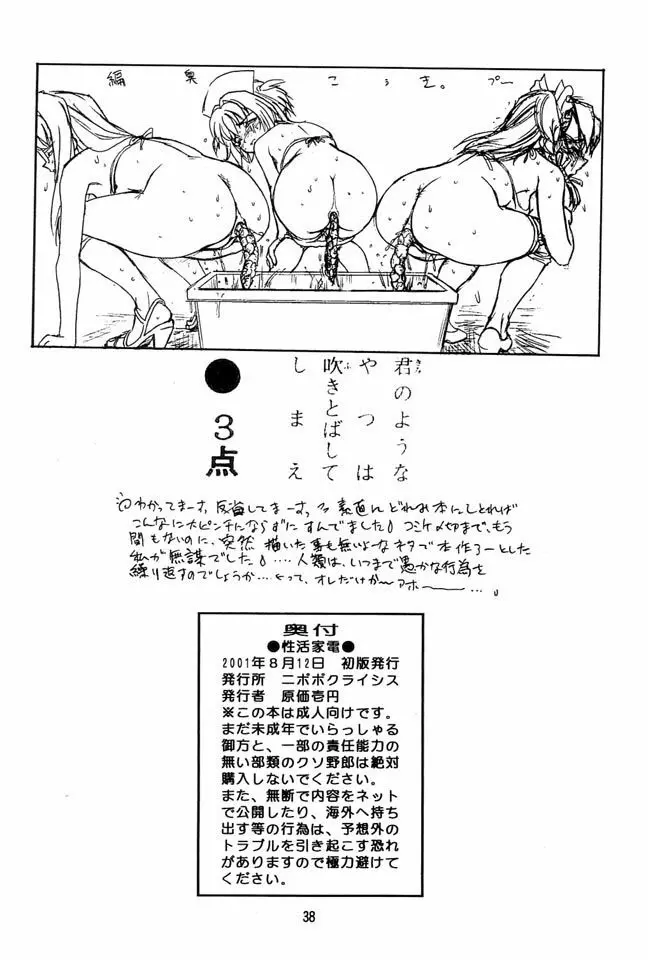 編奥こうき。プー
君のような
やつは
吹きとばして
しまえ
●3点
わかってまーす。反省してまーす。素直にどれみ本にしとれば
こんなに大ピンチにならずにすんでました。コミケ〆切まで、もう
間もないのに、突然描いた事も無いよーなネタで本作ろーとした
私が無謀でした。‥‥人類は、いつまで愚かな行為を
繰り返すのでしょうか‥‥って、オレだけかーアホー‥‥。
奥付
●性活家電●
2001年8月12日 初版発行
発行所 ニポポクライシス
発行者 原価壱円
※この本は成人向けです。
まだ未成年でいらっしゃる
御方と、一部の責任能力の
無い部類のクソ野郎は絶対
購入しないでください。
また、無断で内容をネット
で公開したり、海外へ持ち
出す等の行為は、予想外の
トラブルを引き起こす恐れ
がありますので極力避けて
ください。
38